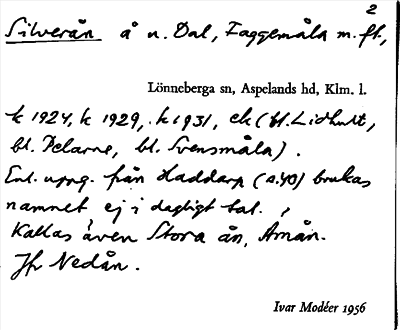 2
Silverån å n. Dal, Faggemåla m. fl.,
Lönneberga sn, Aspelands hd, Klm. l.
k 1924, k 1929, k 1931, ek (bl. Lidhult,
bl. Pelarne, bl. Svensmåla).
Enl. uppg. från Haddarp (s. 40) brukas
namnet ej i dagligt tal.
Kallas även Stora ån, Åmån.
Jfr Nedån.
Ivar Modéer 1956